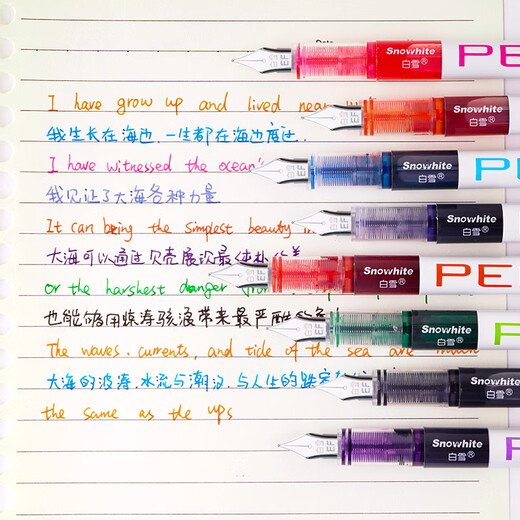 Date
Snowhite
白雪®
PE
I have grow up and lived near
Snowhite
白雪®
我生长在海边，一生都在海边度过．
I have witnessed the ocean's
Snowhite
白雪®
我见证了大海各种力量
Snowhite
白雪®
It can being the simplest beauty
大海可以通过贝壳展
Snowhite
白雪®
PE
or the harshest danger
也能够用惊涛骇浪带来最严酷的
Snowhite
白雪®
The waves. currents, and tide of the sea are much
大海的波涛．水流与潮汐．与人生的跌
Snowhite
白雪®
the same as the ups
Snowhite
白雪®
EF